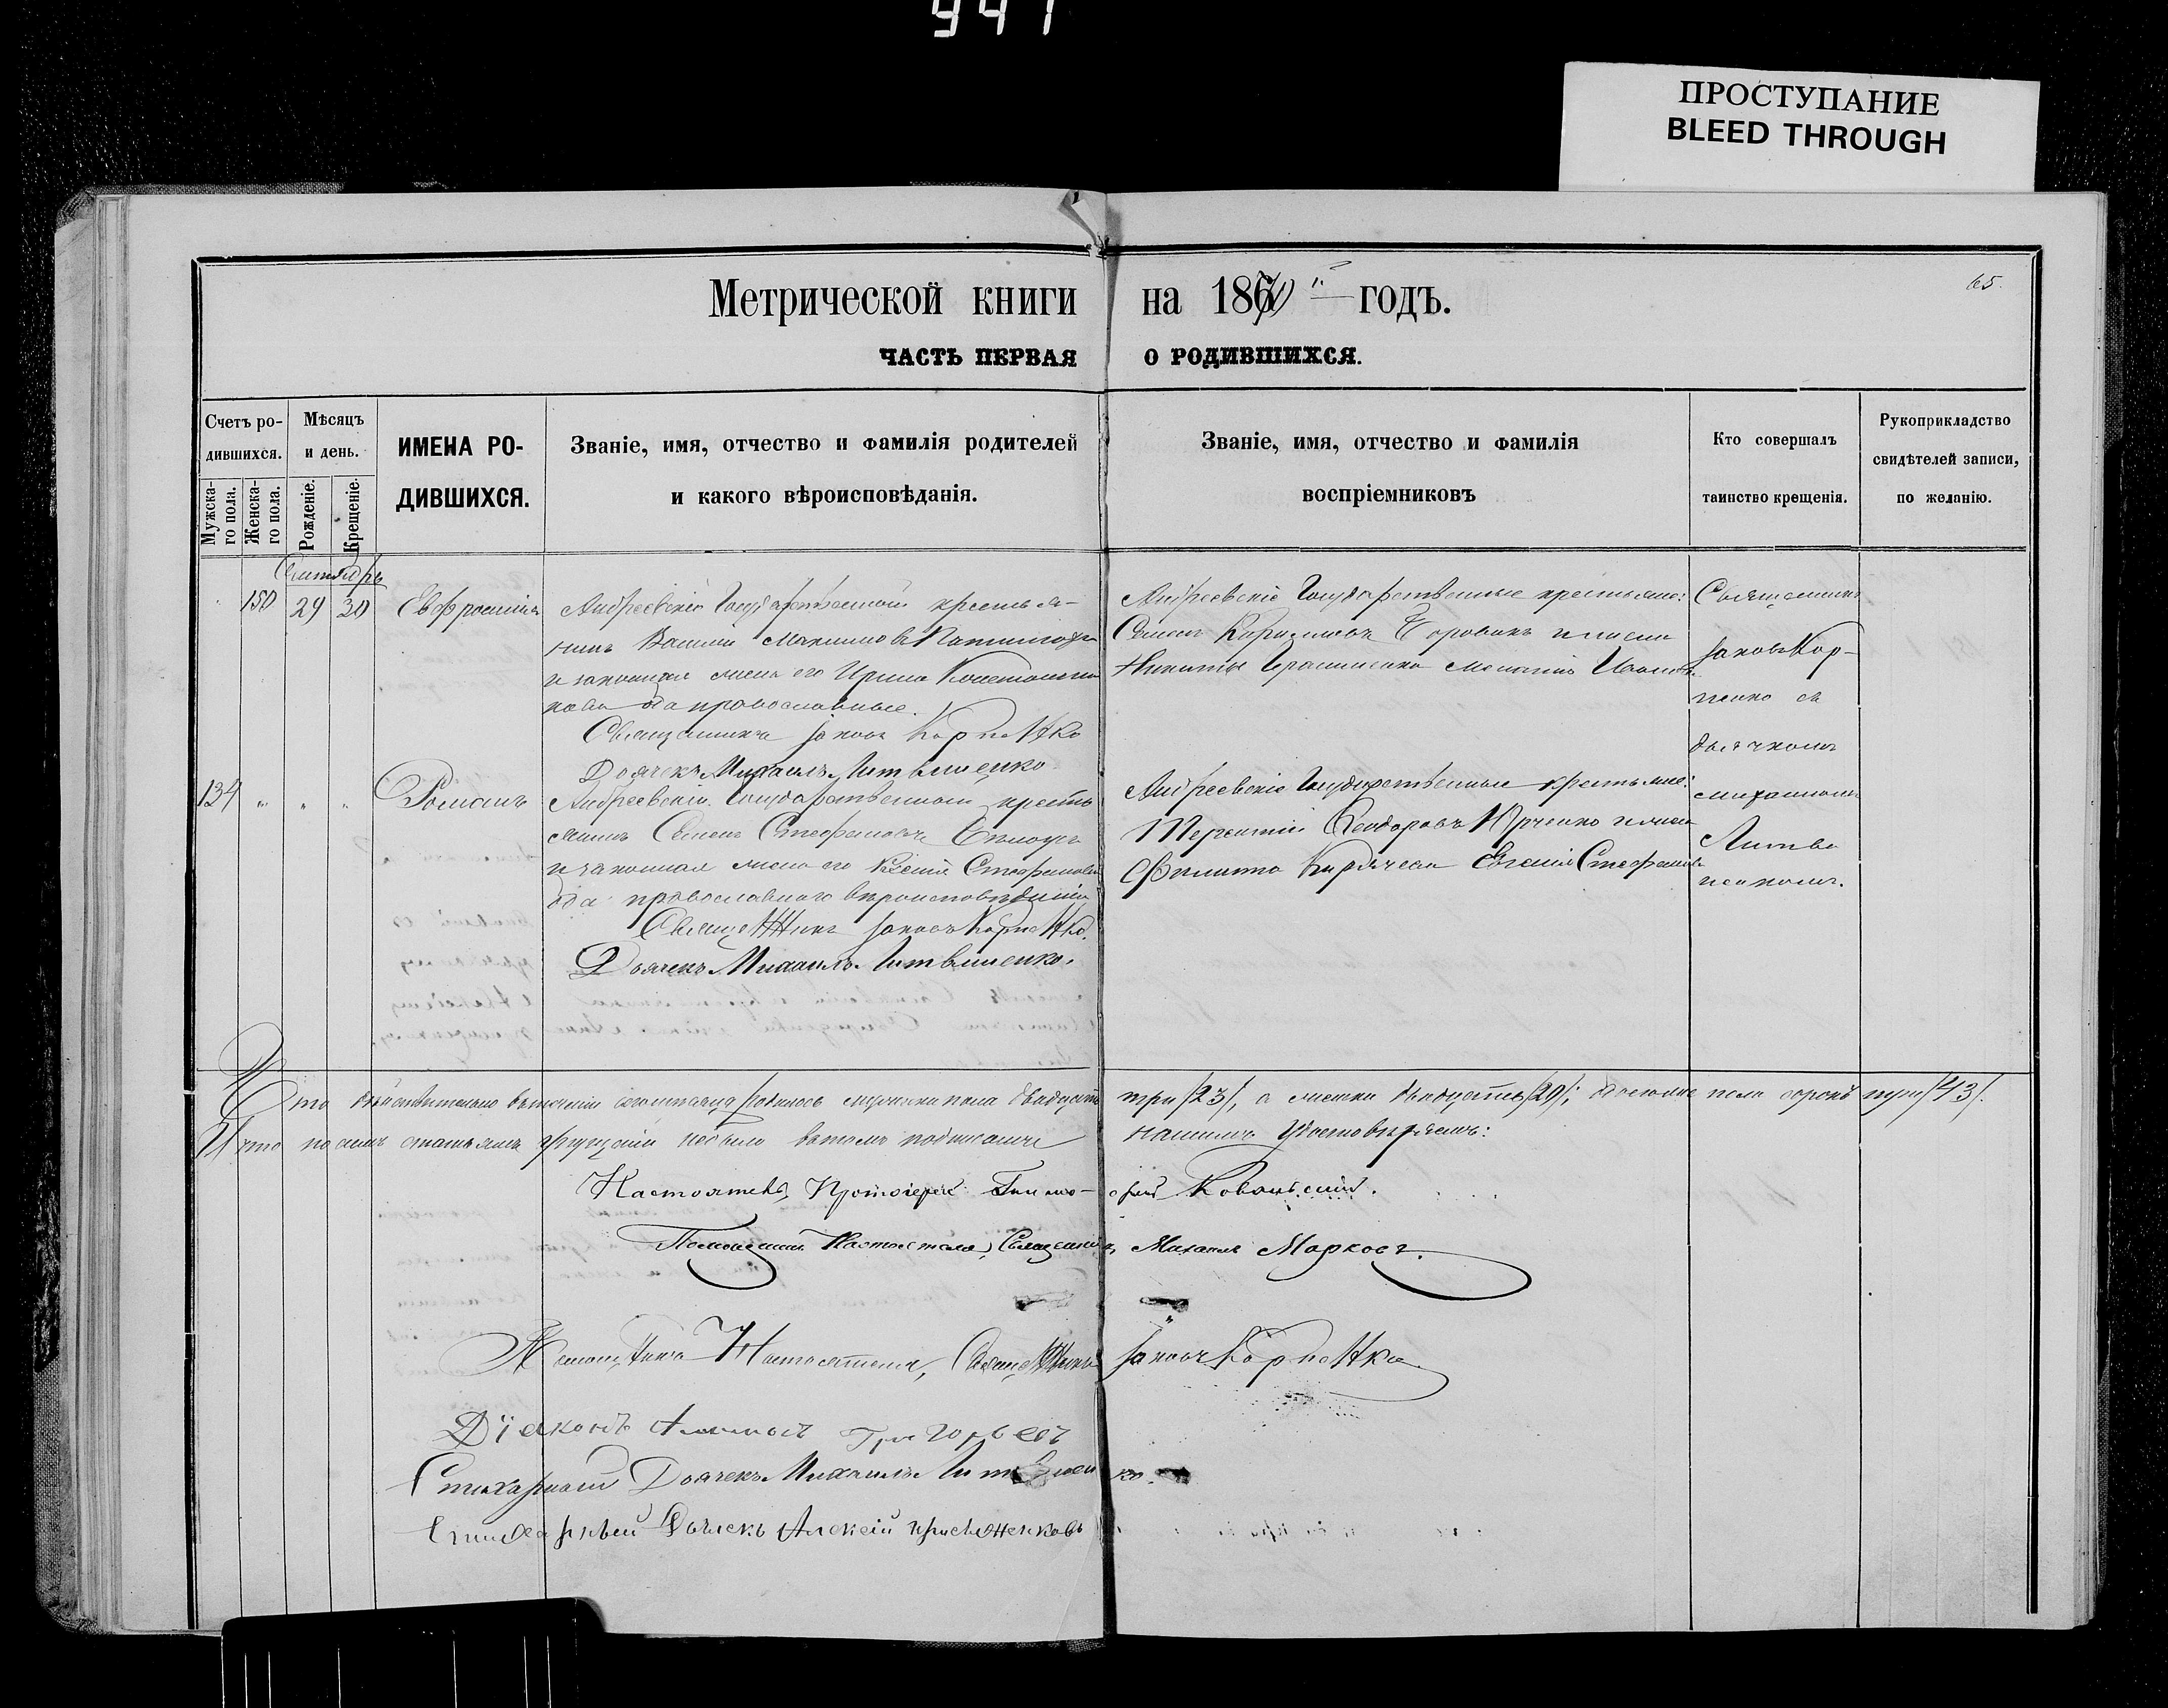 941
ПРОСТУПАНИЕ
BLEED THROUGH
65.
Метрической книги на 1870 годъ.
ЧАСТЬ ПЕРВАЯ О РОДИВШИХСЯ.
Счетъ ро-
дившихся.
Мужска-
го пола.
Женска-
го пола.
Мѣсяцъ
и день.
Рожденіе.
Крещеніе.
ИМЕНА РО-
ДИВШИХСЯ.
Званіе, имя, отчество и фамилія родителей
и какого вѣроисповѣданія.
Званіе, имя, отчество и фамилія
воспріемниковъ
Кто совершалъ
таинство крещенія.
Рукоприкладство
свидѣтелей записи,
по желанію.
Сентябрь
150 29 30 Евфросинія
Андреевскій Государственной крестья-
нинъ Василій Максимовъ
и законная жена его Ирина Константи
нова оба православные.
Священникъ Іаковъ Корнѣнко
Дьячекъ Михаилъ Литвиненко
Андреевскіе Государственные крестьяне:
Семенъ Кориліовъ Боровикъ и жена
Никиты Герасименка Меланія Иванов
Священникъ
Іаковъ Кор-
нѣнко съ
дьячкомъ
Михаиломъ
Литви
ненкомъ.
134 " " " Романъ
Андреевскій Государственной кресть
янинъ Семенъ Стефановъ Бѣлоусъ
и законная жена его Ксенія Стефанова
оба православнаго вѣроисповѣданія
Священникъ Іаковъ Корнѣнко.
Дьячекъ Михаилъ Литвиненко.
Андреевскіе Государственные крестьяне:
Терентій Феодоровъ Юрченко и жена
Филиппа Евгенія Стефанова
Что дѣйствительно въ теченіи сего мѣсяца родилось мужска пола двадцать три /23/, а женска двадцать /20/; обоего же пола сорокъ три /43/.
И что по симъ статьямъ не было въ томъ подписомъ нашимъ удостовѣряемъ:
Настоятель, Протоіерей Тимо-ѳей Ковалевскій.
Помощникъ Настоятеля, Священникъ Михаилъ Марковъ.
Помощникъ Настоятеля, Священникъ Іаковъ Корнѣнко
Діаконъ Григорьевъ
Стихарный Дьячекъ Михаилъ Литвиненко.
Стихарный Дьячекъ Алексій